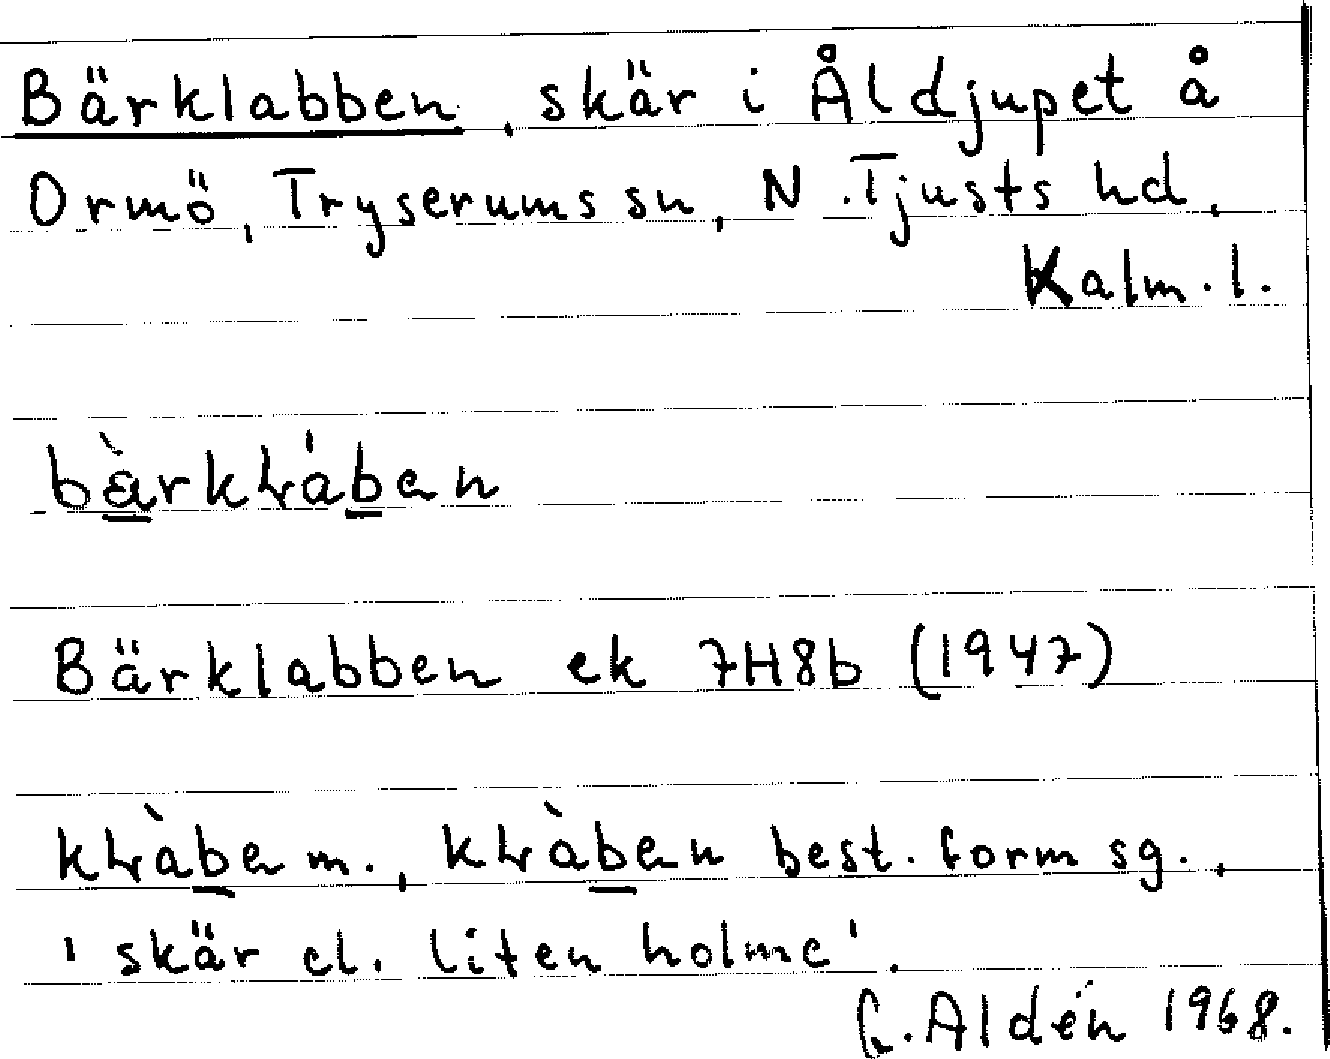 Bärklabben, skär i Åldjupet å
Ormö, Tryserums sn, N. Tjusts hd,
Kalm. l.
Bärklabben ek 7H8b (1947)
m., best. form sg.,
'skär el. liten holme'.
G. Aldén 1968.